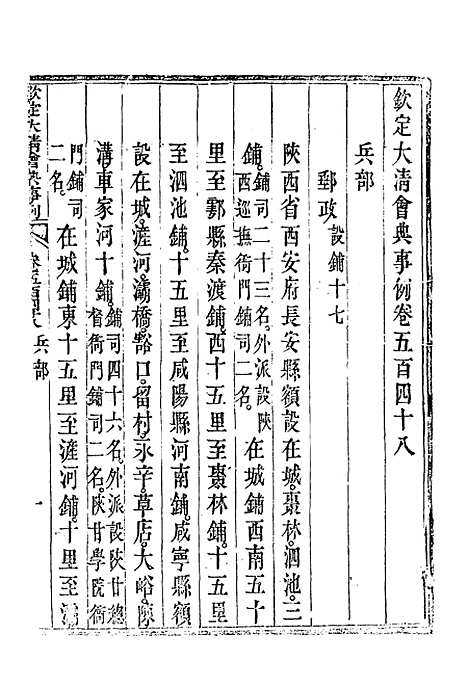 欽定大清會典事例卷五百四十八
兵部
郵政設鋪十七
陝西省西安府長安縣額設在城棗林泗池三
鋪鋪司二十三名外派設陝西巡撫衙門鋪司二名在城鋪西南五十
里至鄠縣秦渡鋪西十五里至棗林鋪十五里
至泗池鋪十五里至咸陽縣河南鋪咸寧縣額
設在城滻河灞橋豁口留村永辛草店大峪陳
溝車家河十鋪鋪司四十六名外派設陝甘總督衙門鋪司二名陝甘學院衙
門鋪司二名在城鋪東十五里至滻河鋪十里至灞
欽定大清會典事例 卷五百四十八 兵部 一